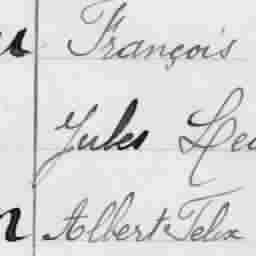 François
Jules
Albert Felix